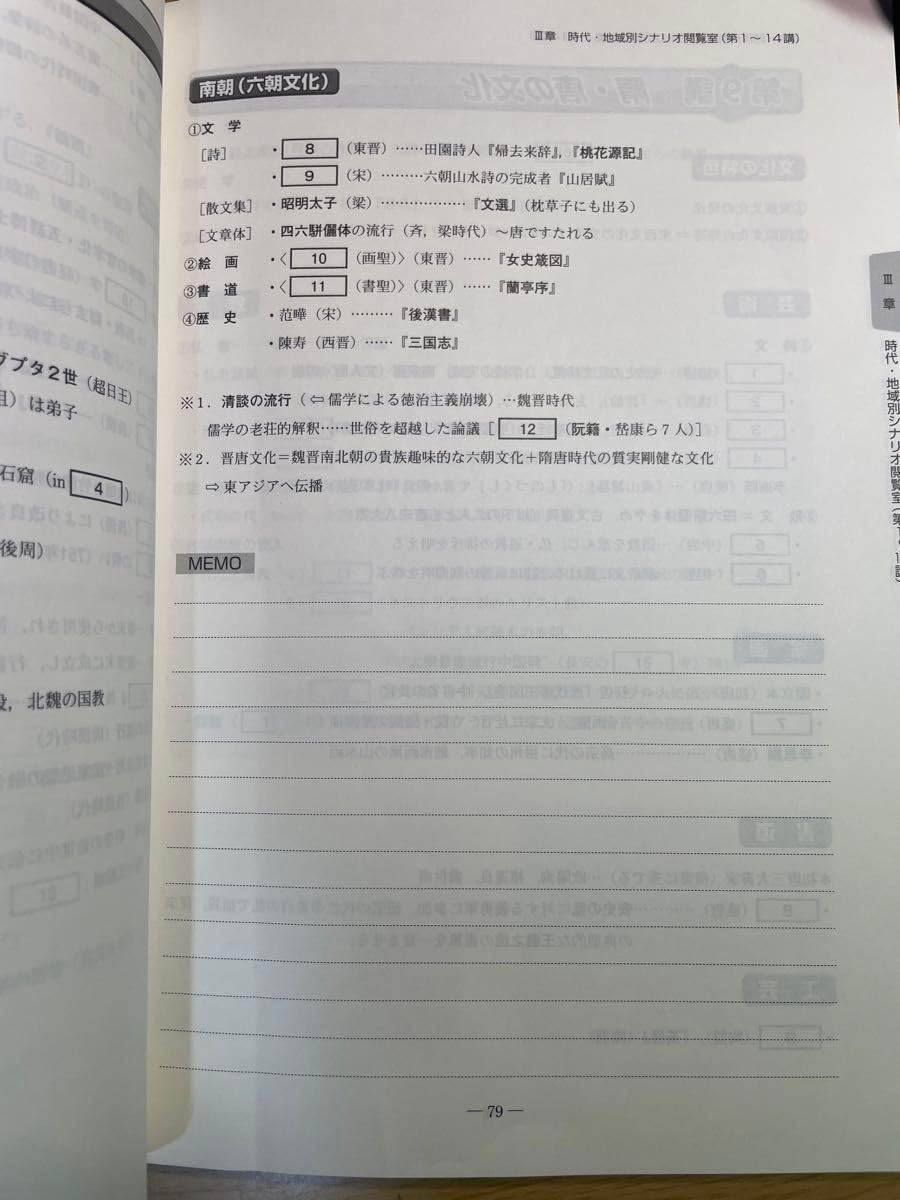 Ⅲ章 時代・地域別シナリオ閲覧室(第1～14講)
南朝(六朝文化)
①文 学
[詩] ・ 8 (東晋)……田園詩人『帰去来辞』,『桃花源記』
・ 9 (宋)………六朝山水詩の完成者『山居賦』
[散文集]・昭明太子(梁)………………『文選』(枕草子にも出る)
[文章体]・四六駢儷体の流行(斉,梁時代)～唐ですたれる
②絵 画 ・〈 10 (画聖)〉(東晋)……『女史箴図』
③書 道 ・〈 11 (書聖)〉(東晋)……『蘭亭序』
④歴 史 ・范曄(宋)………『後漢書』
・陳寿(西晋)……『三国志』
※1.清談の流行(⇦儒学による徳治主義崩壊)…魏晋時代
儒学の老荘的解釈……世俗を超越した論議[ 12 (阮籍・嵆康ら7人)]
※2.晋唐文化=魏晋南北朝の貴族趣味的な六朝文化+隋唐時代の質実剛健な文化
⇨東アジアへ伝播
MEMO
― 79 ―
Ⅲ章
時代・地域別シナリオ閲覧室(第1～14講)
グプタ2世(超日王)
は弟子
石窟(in 4 )
後周)
北魏の国教